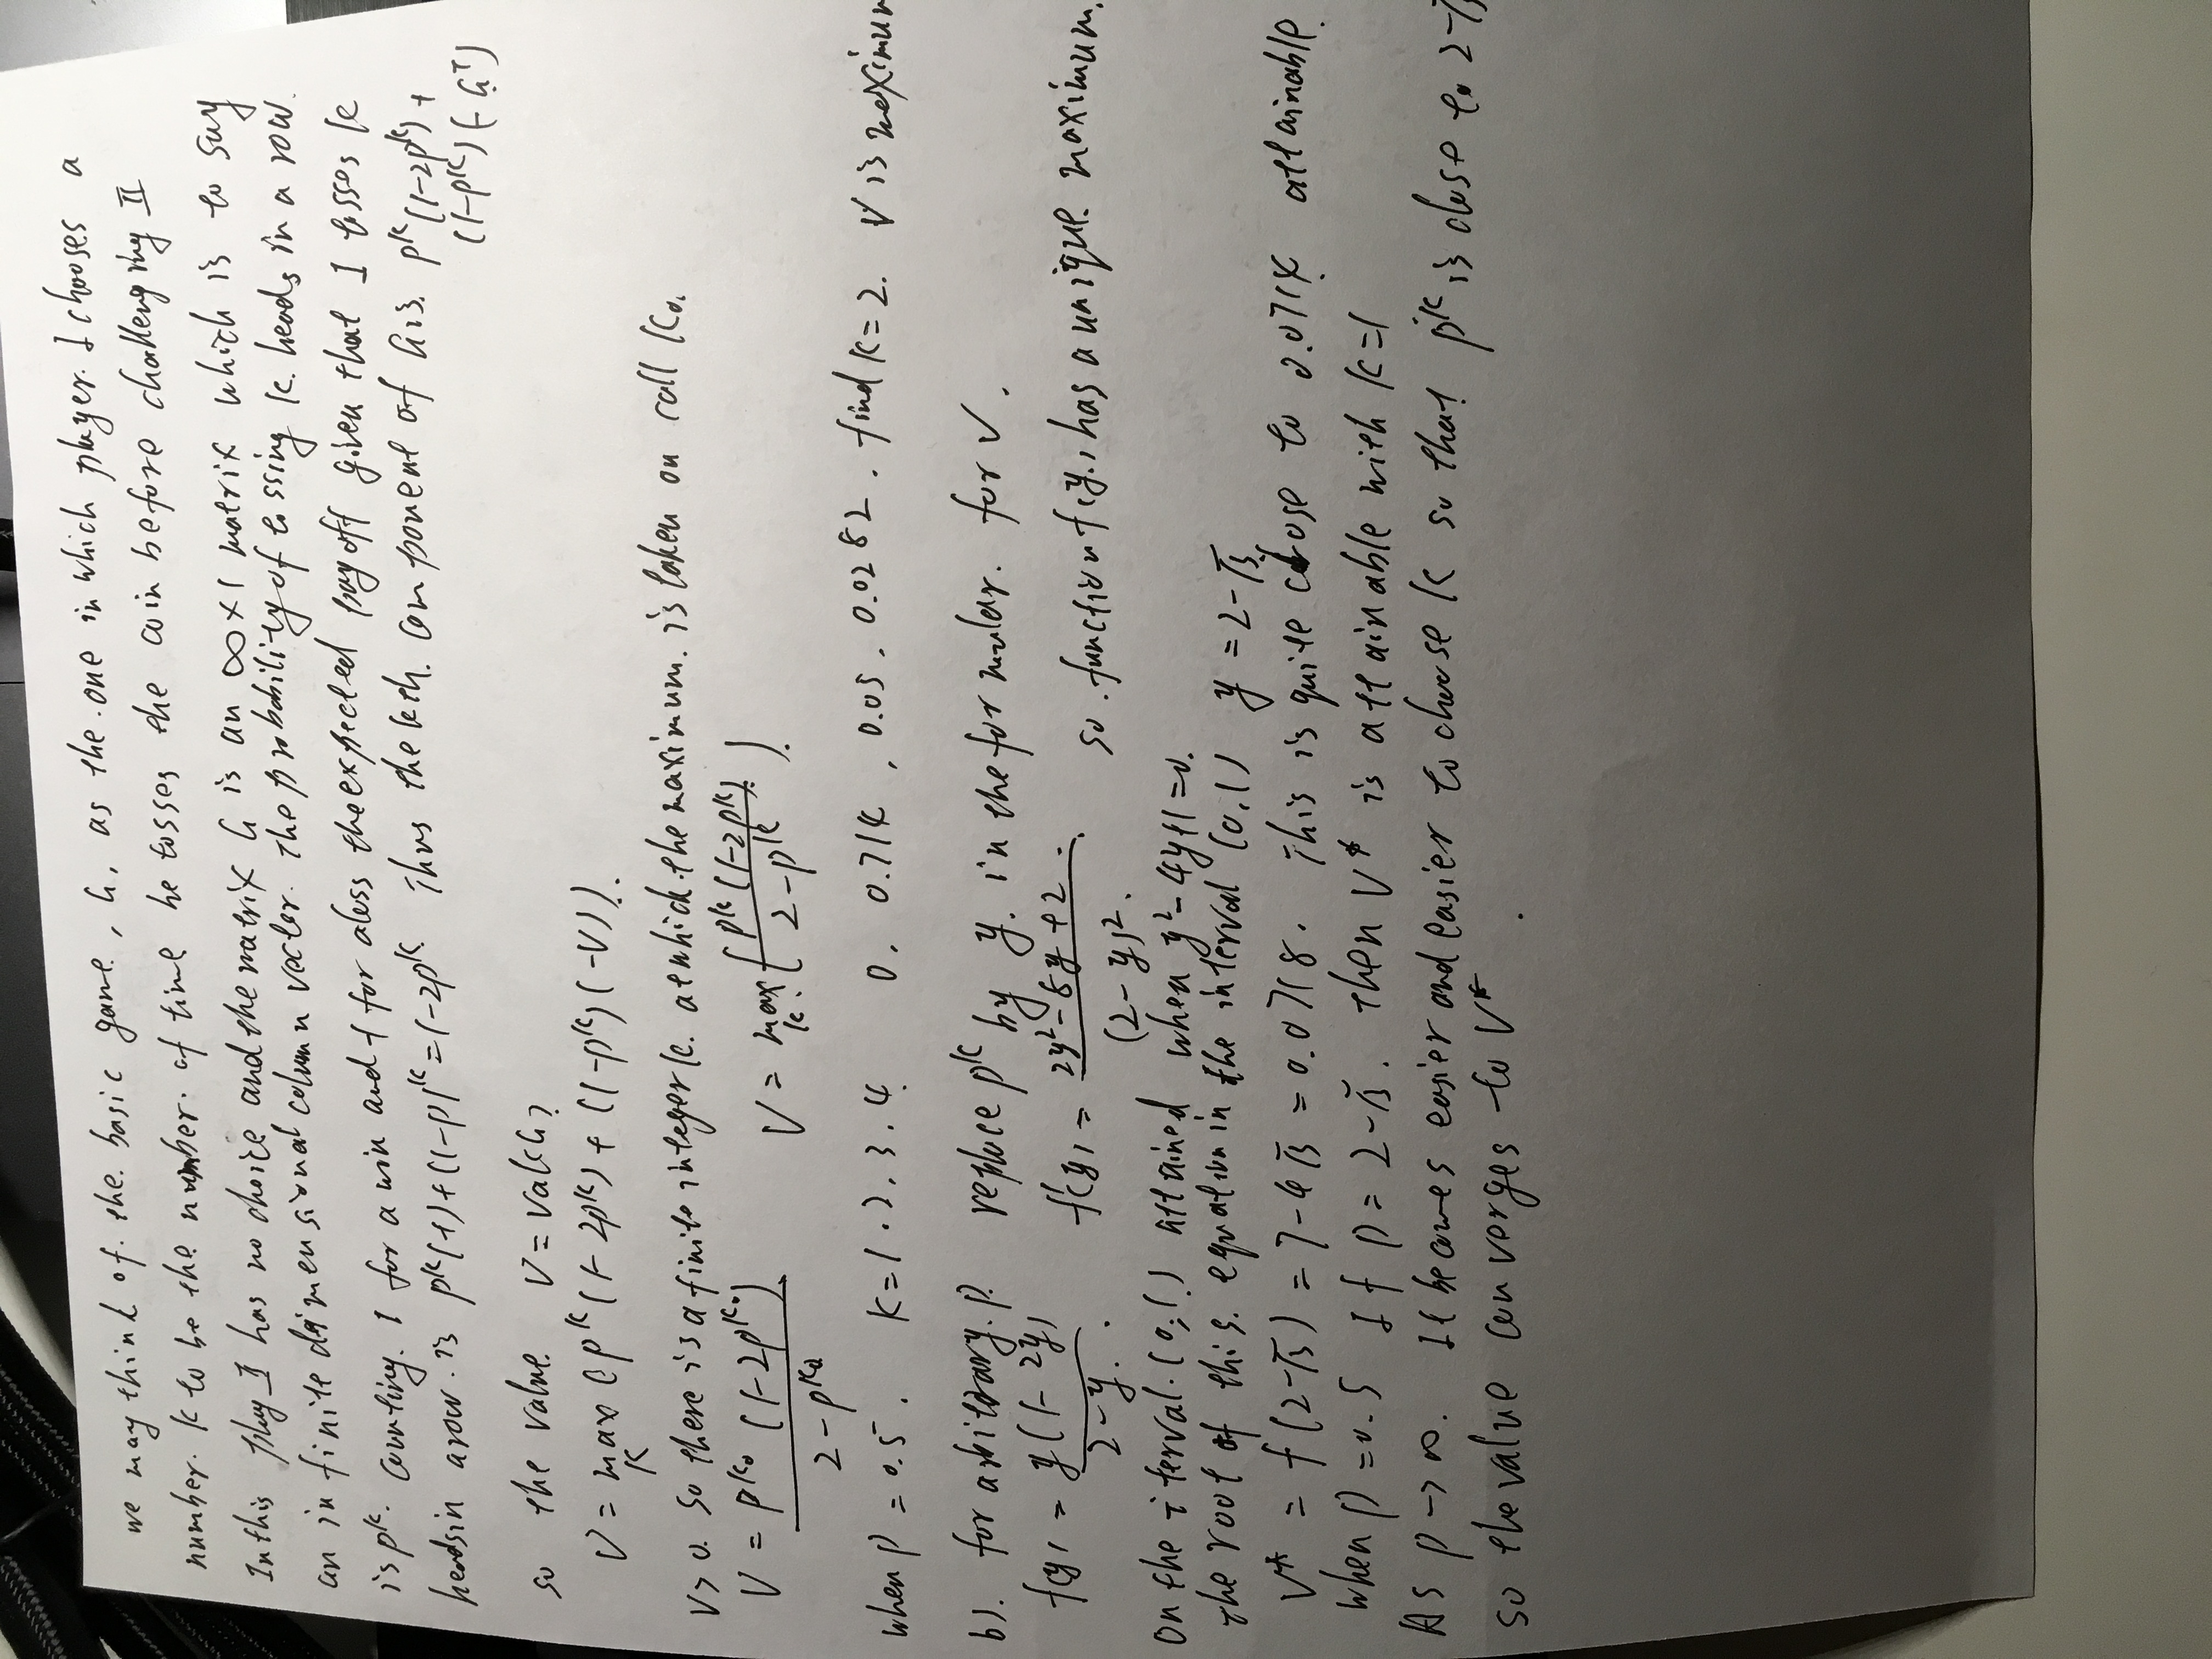 we may think of. the. basic game, G, as the one in which player. I chooses a
number. K to be the number. of time he tosses the coin before challenging II
In this play II has no choice and the matrix G is an ∞×1 matrix which is to say
an infinite dimensional column vector. The probability of tossing K. heads in a row.
is p^K. counting. 1 for a win and -1 for a loss the expected payoff given that I tosses K
heads in a row. is p^K(-1)+(1-p)^K=1-2p^K Thus the kth. component of G is. p^K(1-2p^K)+
(1-p^K)(-G^T)
so the value. V = Val(G)
V = max_K (p^K(1-2p^K) + (1-p^K)(-V)).
V>0. So there is a finite integer K. at which the maximum. is taken on call K0.
V = p^K0 (1-2p^K0) / 2-p^K0 V = max_K. (p^K(1-2p^K) / 2-p^K).
when p = 0.5. K=1.2.3.4 0. 0.714, 0.05. 0.0282. find K=2. V is maximum
b). for arbitrary. p. replace p^K by y. in the formular. for V.
f(y) = y(1-2y) / 2-y. f'(y) = 2y²-8y+2 / (2-y)². so. function f(y) has a unique. maximum.
On the iterval. (0,1) attained when y²-4y+1=0.
The root of this. equation in the interval (0,1) y = 2-√3
V* = f(2-√3) = 7-4√3 = 0.0718. This is quite close to 0.0714 attainable
when p = 0.5 If p = 2-√3. then V* is attainable with K=1
As p → ∞. It becomes easier and easier to choose K so that p^K is close to 2-√3
so the value converges to V*.